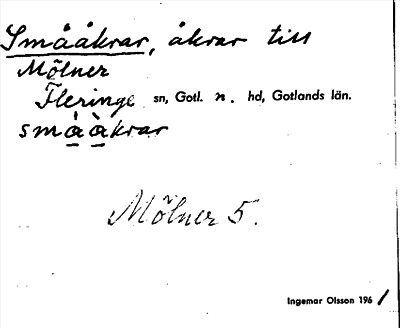 Småakrar, åkrar till
Mölner
Fleringe sn, Gotl. n. hd, Gotlands län.
småàkrar
Mölner 5.
Ingemar Olsson 1961